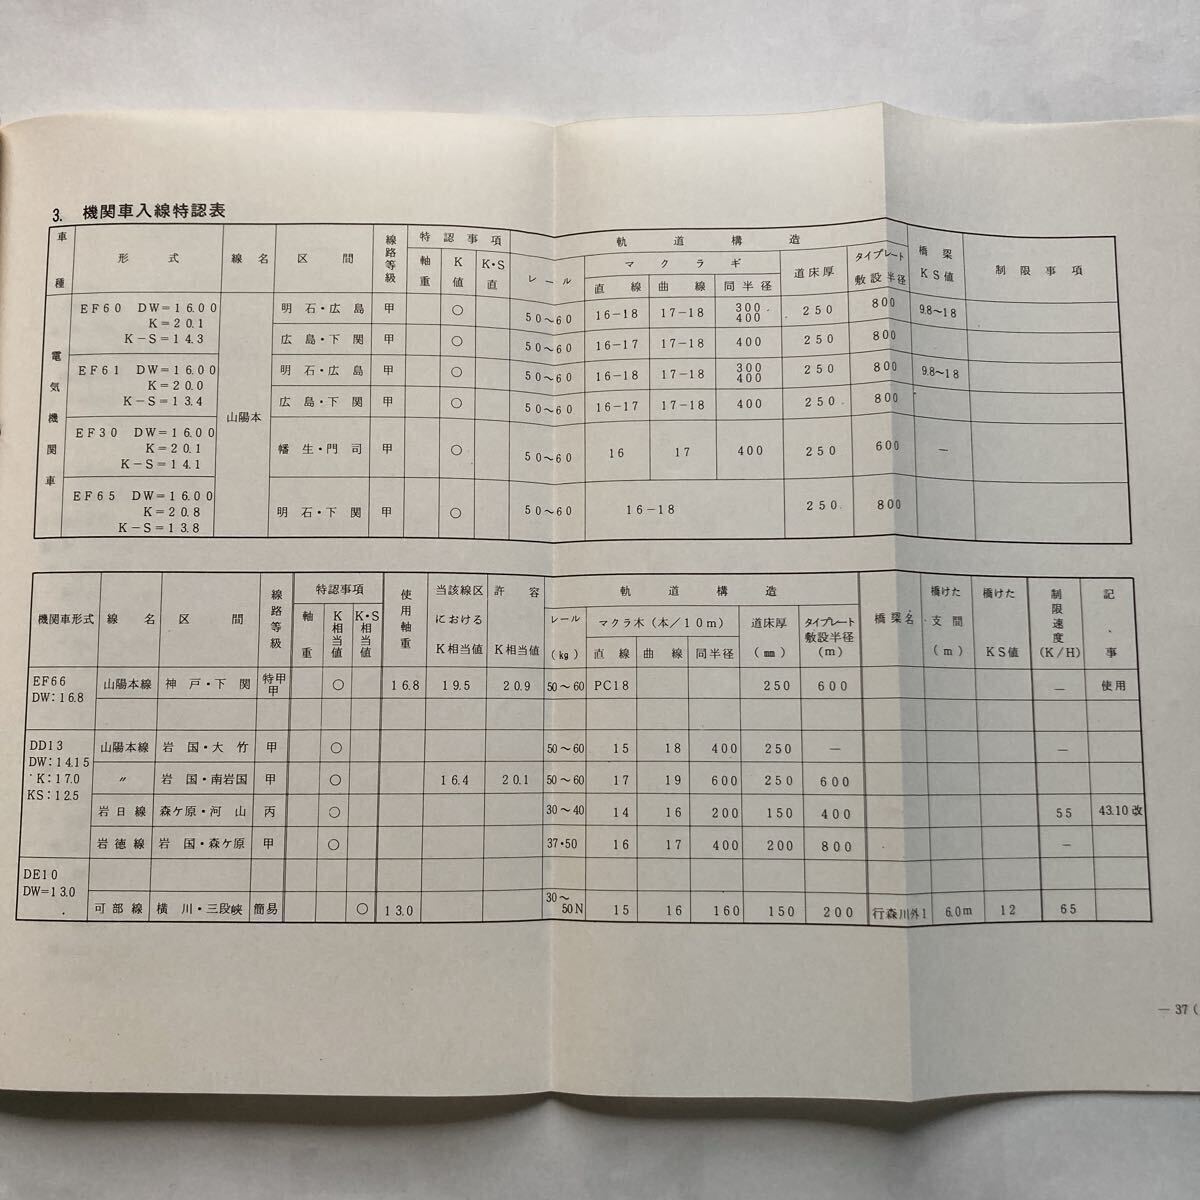 3. 機関車入線特認表
車種 形式 線名 区間 線路等級 特認事項 軌道構造 橋梁KS値 制限事項
軸重 K値 K・S直 レール マクラギ 道床厚 タイプレート敷設半径
直線 曲線 同半径
電気機関車
山陽本
EF60 DW=16.00 明石・広島 甲 ○ 50~60 16-18 17-18 300.400 250 800 9.8~18
K=20.1
K-S=14.3 広島・下関 甲 ○ 50~60 16-17 17-18 400 250 800
EF61 DW=16.00 明石・広島 甲 ○ 50~60 16-18 17-18 300 400 250 800 9.8~18
K=20.0
K-S=13.4 広島・下関 甲 ○ 50~60 16-17 17-18 400 250 800
EF30 DW=16.00
K=20.1 幡生・門司 甲 ○ 50~60 16 17 400 250 600 —
K-S=14.1
EF65 DW=16.00
K=20.8 明石・下関 甲 ○ 50~60 16-18 250 800
K-S=13.8
機関車形式 線名 区間 線路等級 特認事項 使用軸重 当該線区におけるK相当値 許容K相当値 軌道構造 橋梁名 橋けた支間(m) 橋けたKS値 制限速度(K/H) 記事
軸重 K相当値 K・S相当値 レール(kg) マクラ木(本/10m) 道床厚(㎜) タイプレート敷設半径(m)
直線 曲線 同半径
EF66 山陽本線 神戸・下関 特甲甲 ○ 16.8 19.5 20.9 50~60 PC18 250 600 — 使用
DW:16.8
DD13 山陽本線 岩国・大竹 甲 ○ 50~60 15 18 400 250 — —
DW:14.15
K:17.0 〃 岩国・南岩国 甲 ○ 16.4 20.1 50~60 17 19 600 250 600
KS:12.5
岩日線 森ケ原・河山 丙 ○ 30~40 14 16 200 150 400 55 43.10改
岩徳線 岩国・森ケ原 甲 ○ 37・50 16 17 400 200 800 —
DE10
DW=13.0
可部線 横川・三段峡 簡易 ○ 13.0 30~50N 15 16 160 150 200 行森川外1 6.0m 12 65
— 37 (